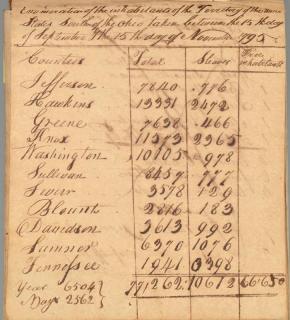 Enumeration of the inhabitants of the Territory of the United
States South of the Ohio taken between the 15th day
of September the 15th day of November 1795
Counties Total Slaves Free inhabitants
Jefferson 7840 .776
Hawkins 13331 2472
Greene 7638 .466
Knox 11573 2365
Washington 10105 978
Sullivan 8457 777
Sevier 3578 129
Blount 2816 183
Davidson 3613 992
Sumner 6370 1076
Tennessee 1941 398
Yeas 6504 77262 10612 66650
Nays 2562